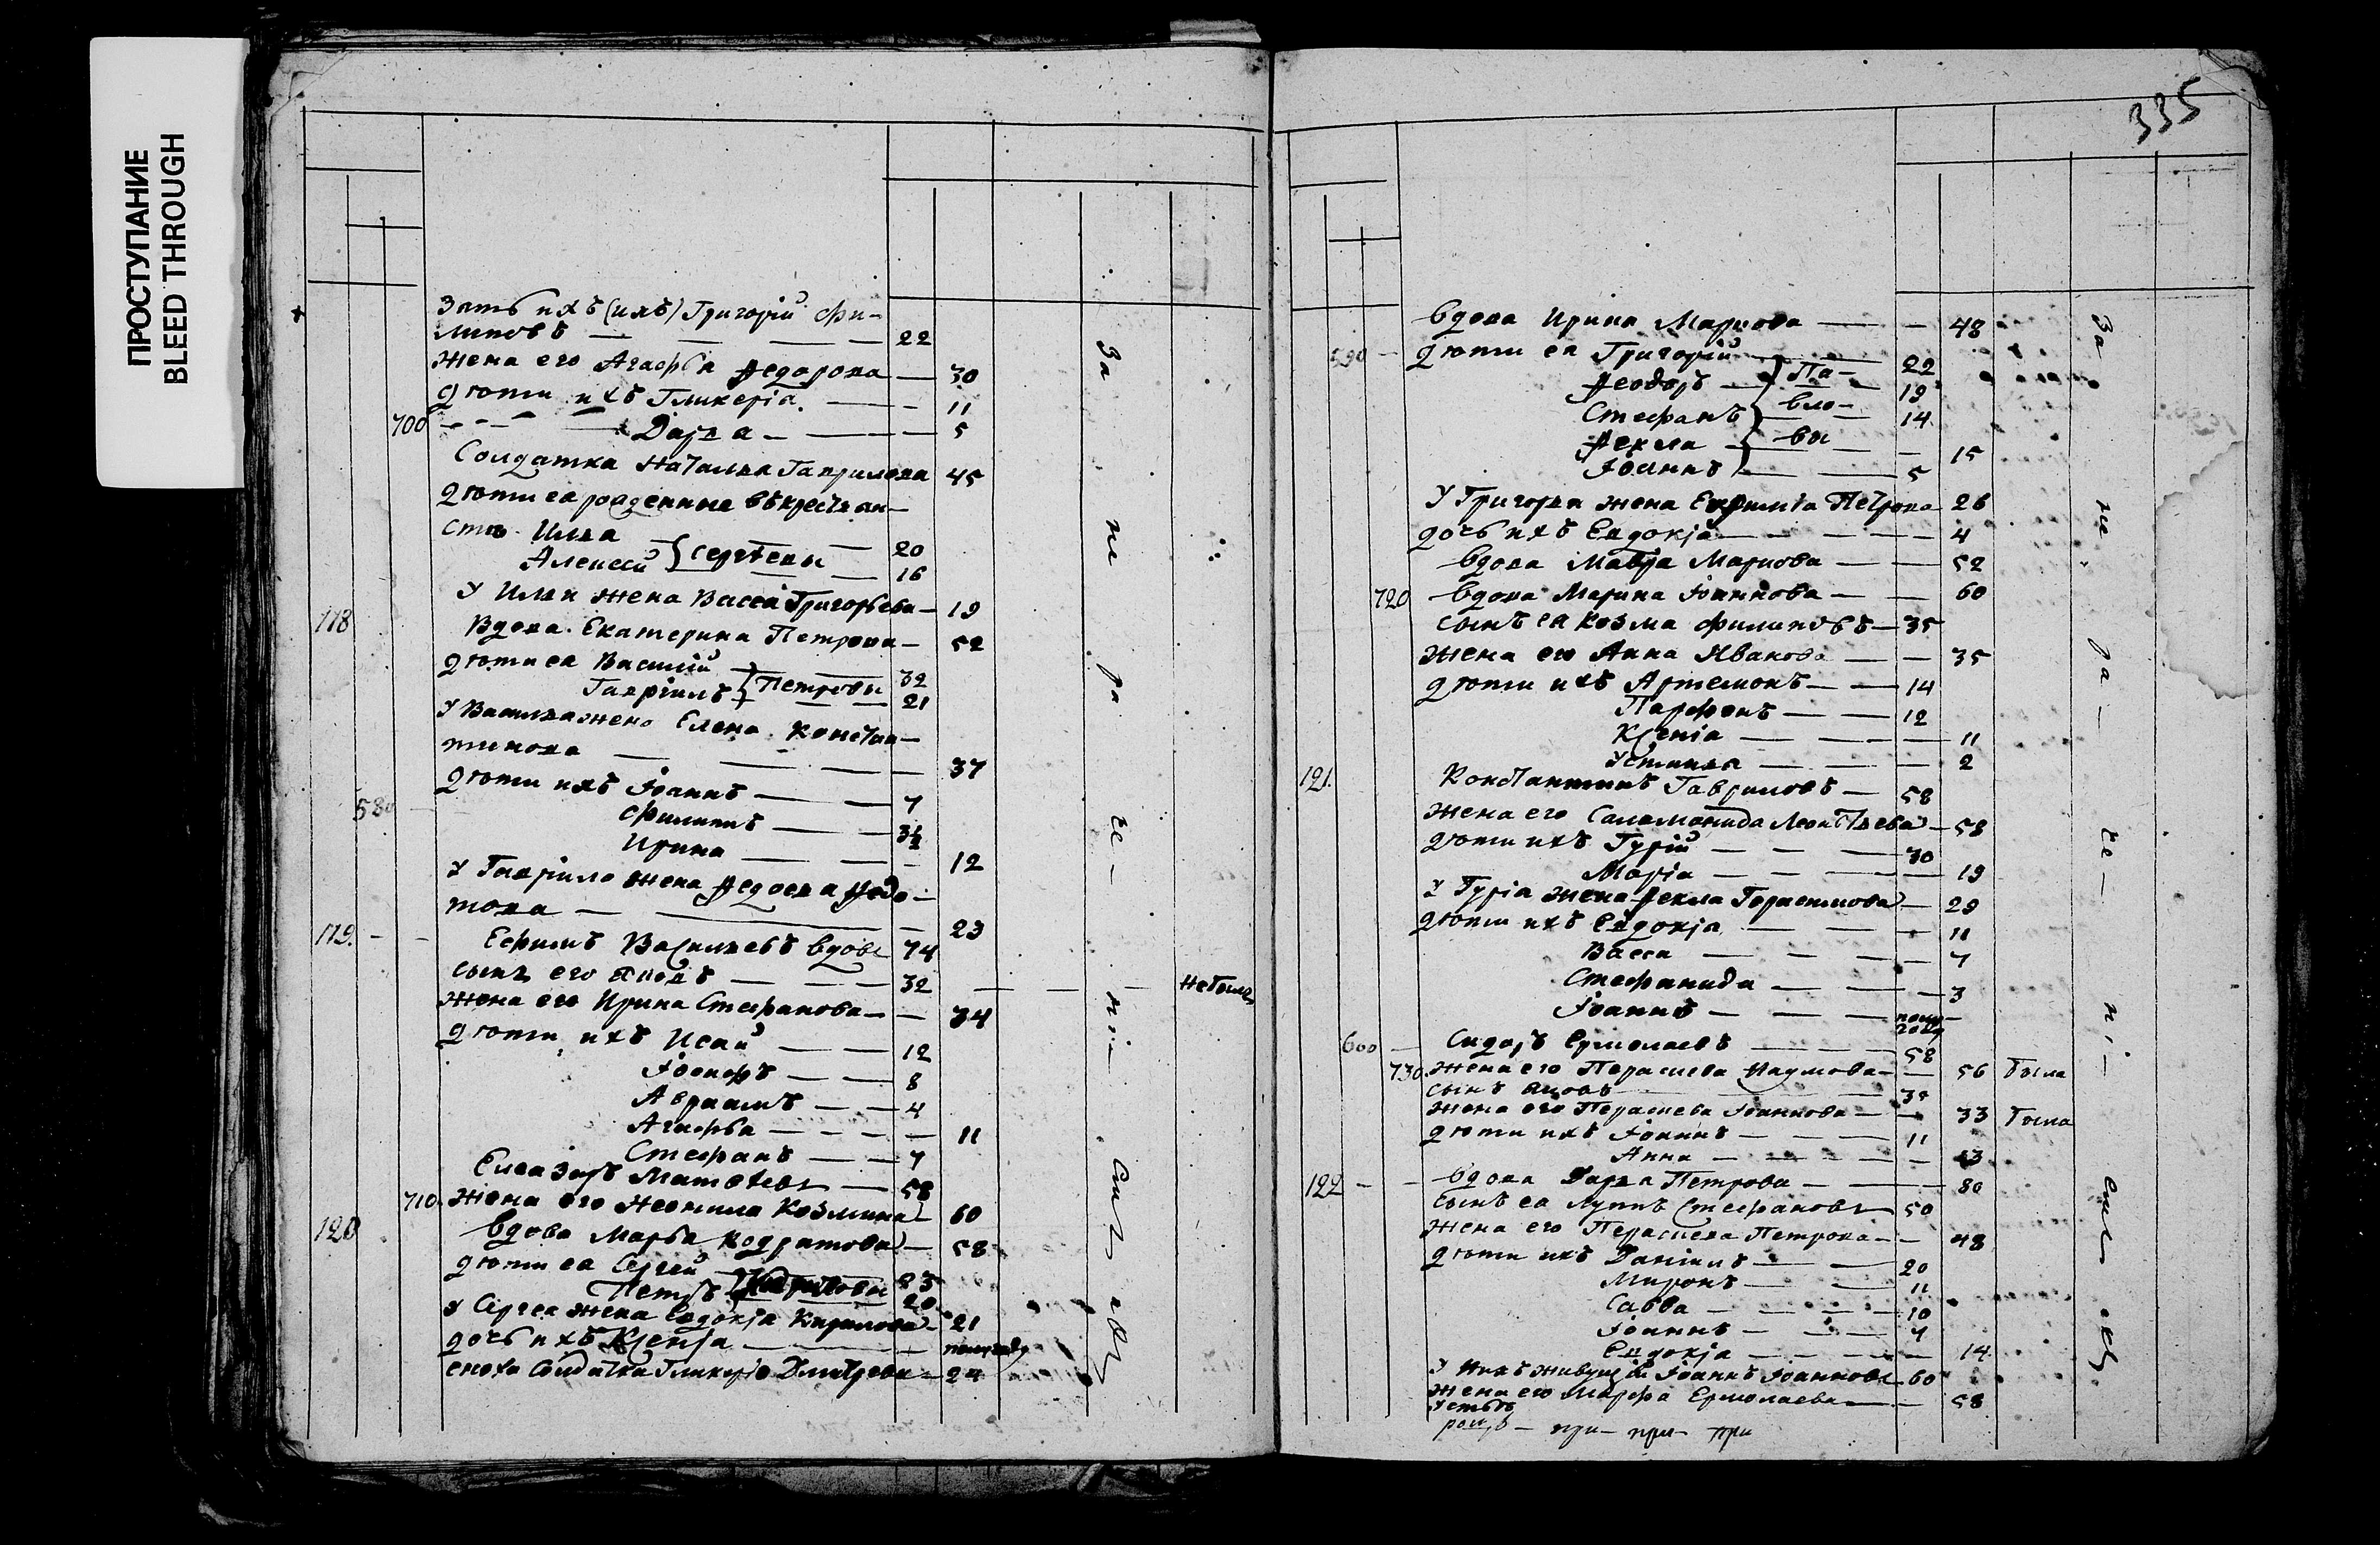 ПРОСТУПАНИЕ
BLEED THROUGH
Зать ихъ (ихъ) Григорій Фи-
липовъ — 22
жена его Агафья Ѳедорова — 30
дѣти ихъ Гликерія — 11
700 Дарья — 5
Солдатка Наталья Гаврилова 45
дѣти ея рожденные въ крестьян-
ств. Илья — 20
Алексей } Сергѣевы — 16
У Ильи жена Васса Григорьева — 19
118 Вдова Екатерина Петрова — 52
дѣти ея Василій — 32
Гавріилъ } Петровы — 21
У Василья жена Елена Констан-
тинова — 37
дѣти ихъ Іоаннъ — 7
580 Филиппъ — 3½
Ирина — 12
У Гаврила жена Ѳедосья Ѳедо-
това — 23
119. Ефимъ Васильевъ вдовъ 74
сынъ его — 32 — не былъ
жена его Ирина Стефанова — 34
дѣти ихъ Исай — 12
Іосифъ — 8
Авраамъ — 4
Агафья — 11
Стефанъ — 7
Елеазаръ Матѳеевъ — 58
710 жена его Неонила Козмина — 60
120 Вдова Марѳа Кодратова — 58
дѣти ея Сергей — 23
Петръ — 20
У Сергея жена Евдокія Кирилова — 21
дочь ихъ Ксенія — полугоду
сноха Солдатка Гликерія Дмитрева — 24
За не ра че — ніе — смъ

335
Вдова Ирина Маркова — 48
590 дѣти ея Григорій — 22
Ѳеодоръ } Па- 19
Стефанъ } вло- 14
Ѳекла } вы 15
Іоаннъ — 5
У Григорья жена Евфимія Петрова 26
дочь ихъ Евдокія — 4
Вдова Мавра Маркова — 52
720 Вдова Марина Іоаннова — 60
сынъ ея Козма Филиповъ — 35
жена его Анна Иванова — 35
дѣти ихъ Артемонъ — 14
Парфенъ — 12
Ксенія — 11
Устинья — 2
121. Константинъ Гавриловъ — 58
жена его Саломонида Леонтьева — 58
дѣти ихъ Гурій — 30
Марія — 19
У Гурія жена Ѳекла Герасимова — 29
дѣти ихъ Евдокія — 11
Васса — 7
Стефанида — 3
Іоаннъ — полугоду
600 Сидоръ Ермолаевъ — 58
730 жена его Параскева Наумова — 56 была
сынъ — 35
жена его Параскева Іоаннова — 33 была
дѣти ихъ Іоаннъ — 11
Анна — 13
122 — Вдова Дарья Петрова — 80
сынъ ея Лупъ Стефановъ 50
жена его Параскева Петрова — 48
дѣти ихъ Даніилъ — 20
Миронъ — 11
Савва — 10
Іоаннъ — 7
Евдокія — 14
У нихъ живущій Іоаннъ Іоанновъ 60
жена его Марфа Ермолаева — 58
при — при — при
За не ра — че — ні — смъ